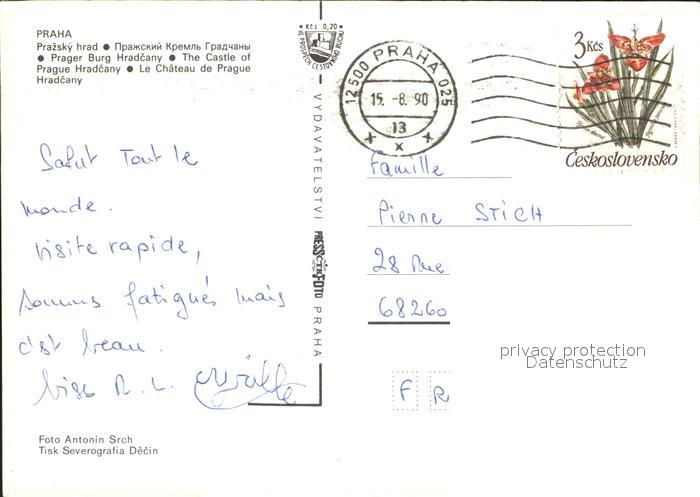 PRAHA
Pražský hrad ● Пражский Кремль Градчаны
● Prager Burg Hradčany ● The Castle of
Prague Hradčany ● Le Château de Prague
Hradčany
Kčs 0,20
VE PROSPĚCH CESTOVNÍHO RUCHU
12500 PRAHA 025
15. -8. 90
13
3 Kčs
Československo
VYDAVATELSTVÍ PRESSFOTO PRAHA
Salut Tout le
monde.
visite rapide,
sommes fatigués mais
c'est beau.
bises R. L.
Famille
Pierre STICH
28 Rue
68260
F R
privacy protection
Datenschutz
Foto Antonín Srch
Tisk Severografia Děčín